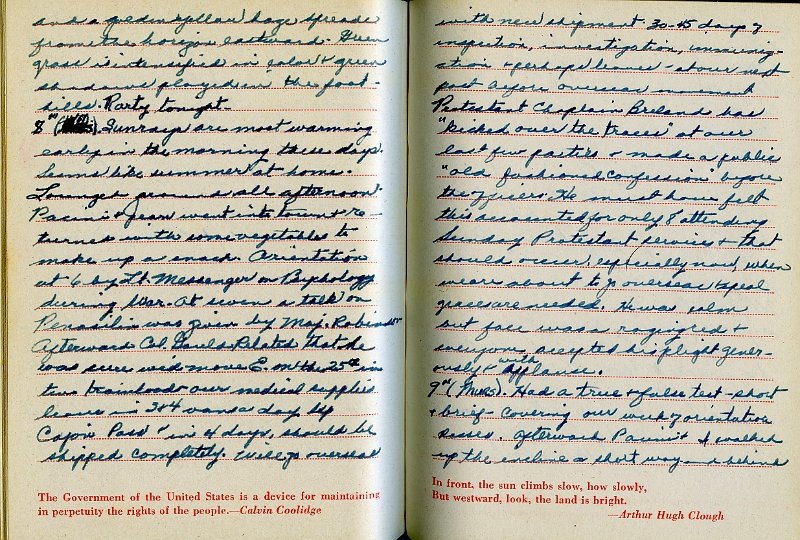 and a golden yellow haze spreads
from the horizon eastward. Green
grass is intensified in color & green
shadows played in the foot-
hills. Party tonight.
8th Sunrays are most warming
early in the morning these days.
Seems like summer at home.
Lounged around all afternoon.
Pacini & Jean went into town & re-
turned with some vegetables to
make up a snack. Orientation
at 6 by Lt. Messenger on Psychology
during War. At seven a talk on
Penacilin was given by Maj. Robinson
Afterwards Col. Related that he
was sure we'd move E. on the 25th in
two trainloads our medical supplies
leave in 3 or 4 vans a day by
Cajon Pass & in 4 days, should be
shipped completely. Will go overseas
The Government of the United States is a device for maintaining
in perpetuity the rights of the people.—Calvin Coolidge
with new shipment 30-45 days of
inspection, investigation, immuniz-
ation & perhaps leaves - at our next
post before overseas
Protestant Chaplain Breland has
"kicked over the traces" at our
last few parties & made a public
"old fashioned confession" before
the officers. He must have felt
this accounted for only 8 attending
Sunday Protestant services & that
should occur, especially now, when
we are about to go overseas & spiritual
graces are needed. He was calm
but face was a raging red &
everyone accepted his plight gener-
ously & with applause.
9th (Thurs). Had a true & false test - short
& brief - covering our week of orientation
classes. Afterwards Pacini & I walked
up the incline a short way - behind
In front, the sun climbs slow, how slowly,
But westward, look, the land is bright.
—Arthur Hugh Clough